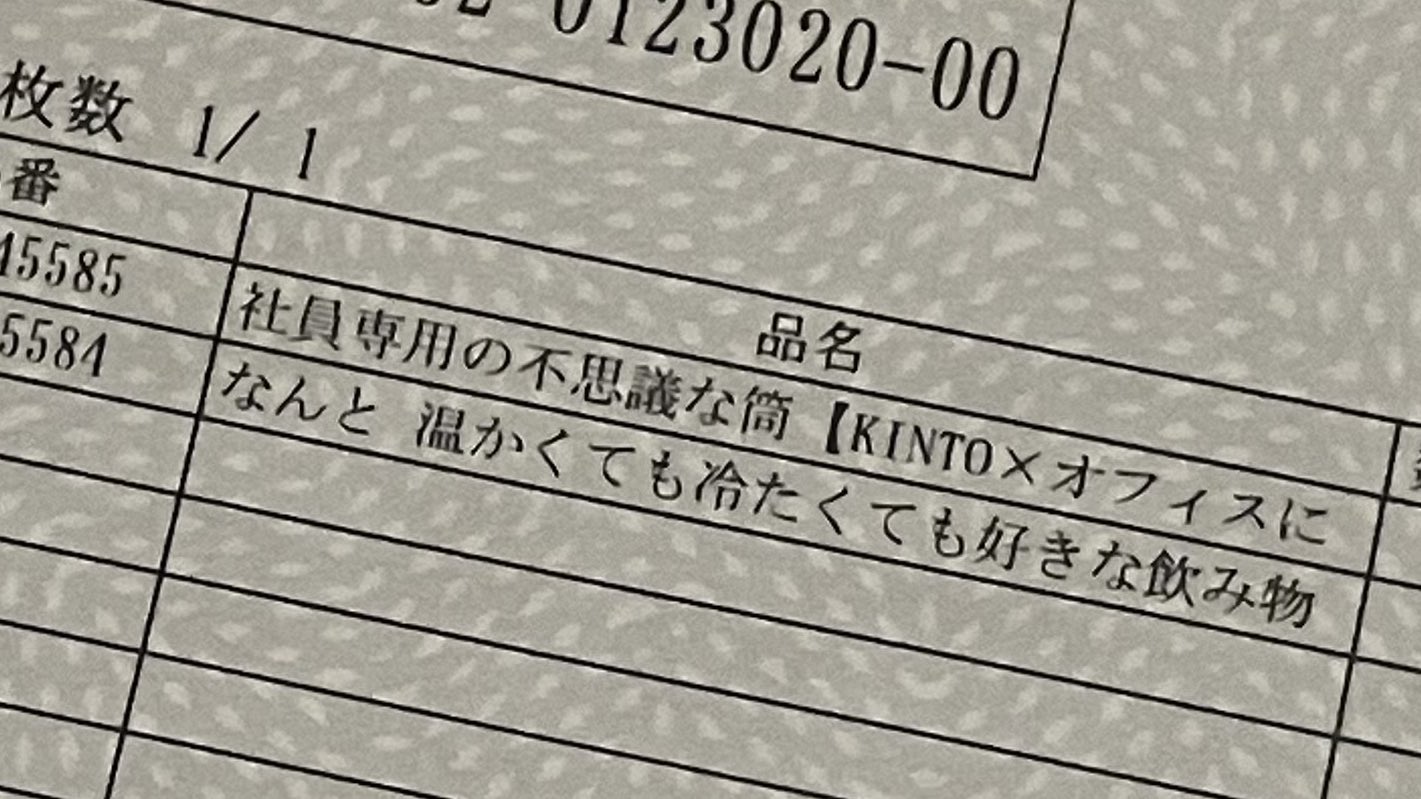 0123020-00
枚数 1/ 1
番 品名
45585 社員専用の不思議な筒【KINTO×オフィスに
5584 なんと 温かくても冷たくても好きな飲み物